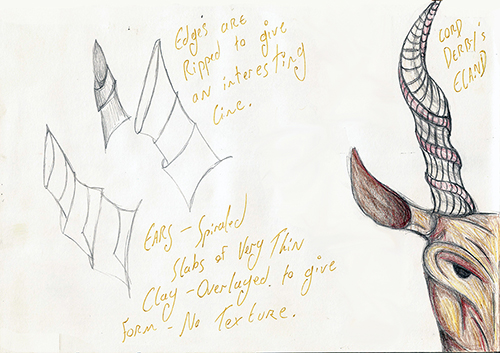 Edges are
Ripped to give
an interesting
line.
LORD
DERBY'S
ELAND
EARS - Spiraled
Slabs of Very Thin
Clay - Overlayed. to give
Form - No Texture.